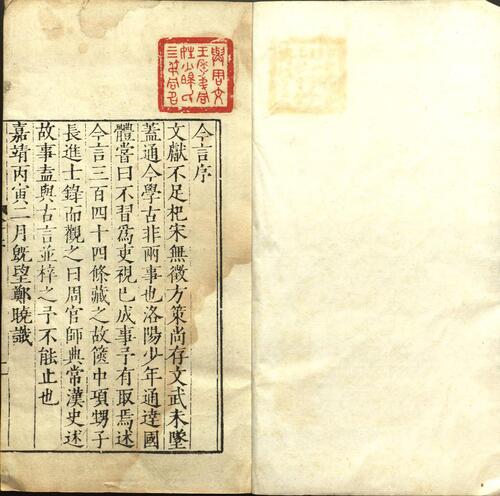 今言序
文獻不足杞宋無徵方策尚存文武未墜
蓋通今學古非兩事也洛陽少年通達國
體嘗曰不習爲吏視已成事予有取焉述
今言三百四十四條藏之故篋中項甥子
長進士鋒而觀之曰周官師典常漢史述
故事盍與古言並梓之予不能止也
嘉靖丙寅二月旣望鄭曉識